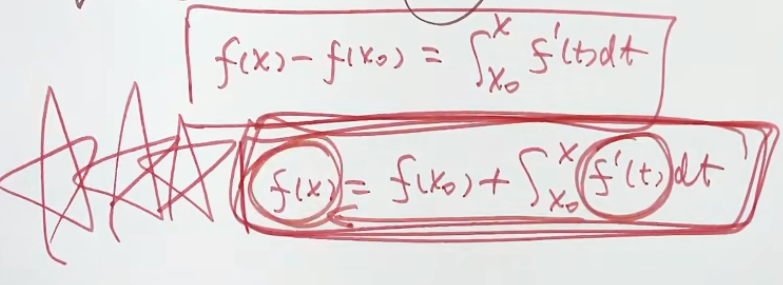 f(x) - f(x₀) = ∫_{x₀}^{x} f'(t)dt
f(x) = f(x₀) + ∫_{x₀}^{x} f'(t)dt